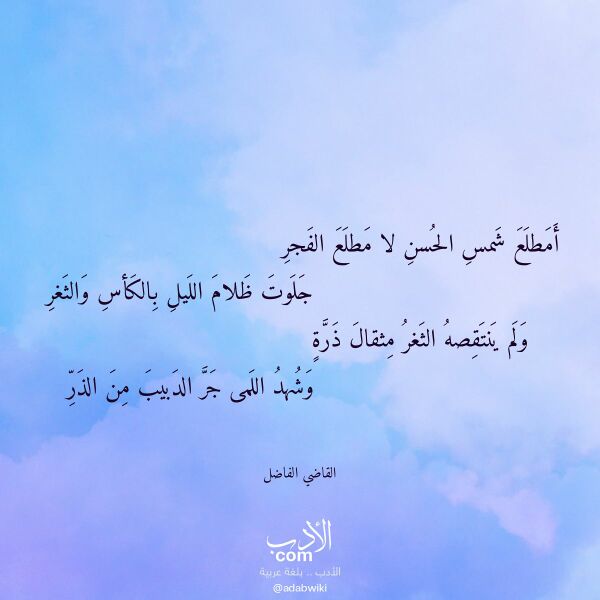 أَمَطلَعَ شَمسِ الحُسنِ لا مَطلَعَ الفَجرِ
جَلَوتَ ظَلامَ اللَيلِ بِالكَأسِ وَالثَغرِ
وَلَم يَنتَقِصهُ الثَغرُ مِثقالَ ذَرَّةٍ
وَشُهدُ اللَمى جَرَّ الدَبيبَ مِنَ الذَرِّ
القاضي الفاضل
الأدب
com
الأدب .. بلغة عربية
@adabwiki